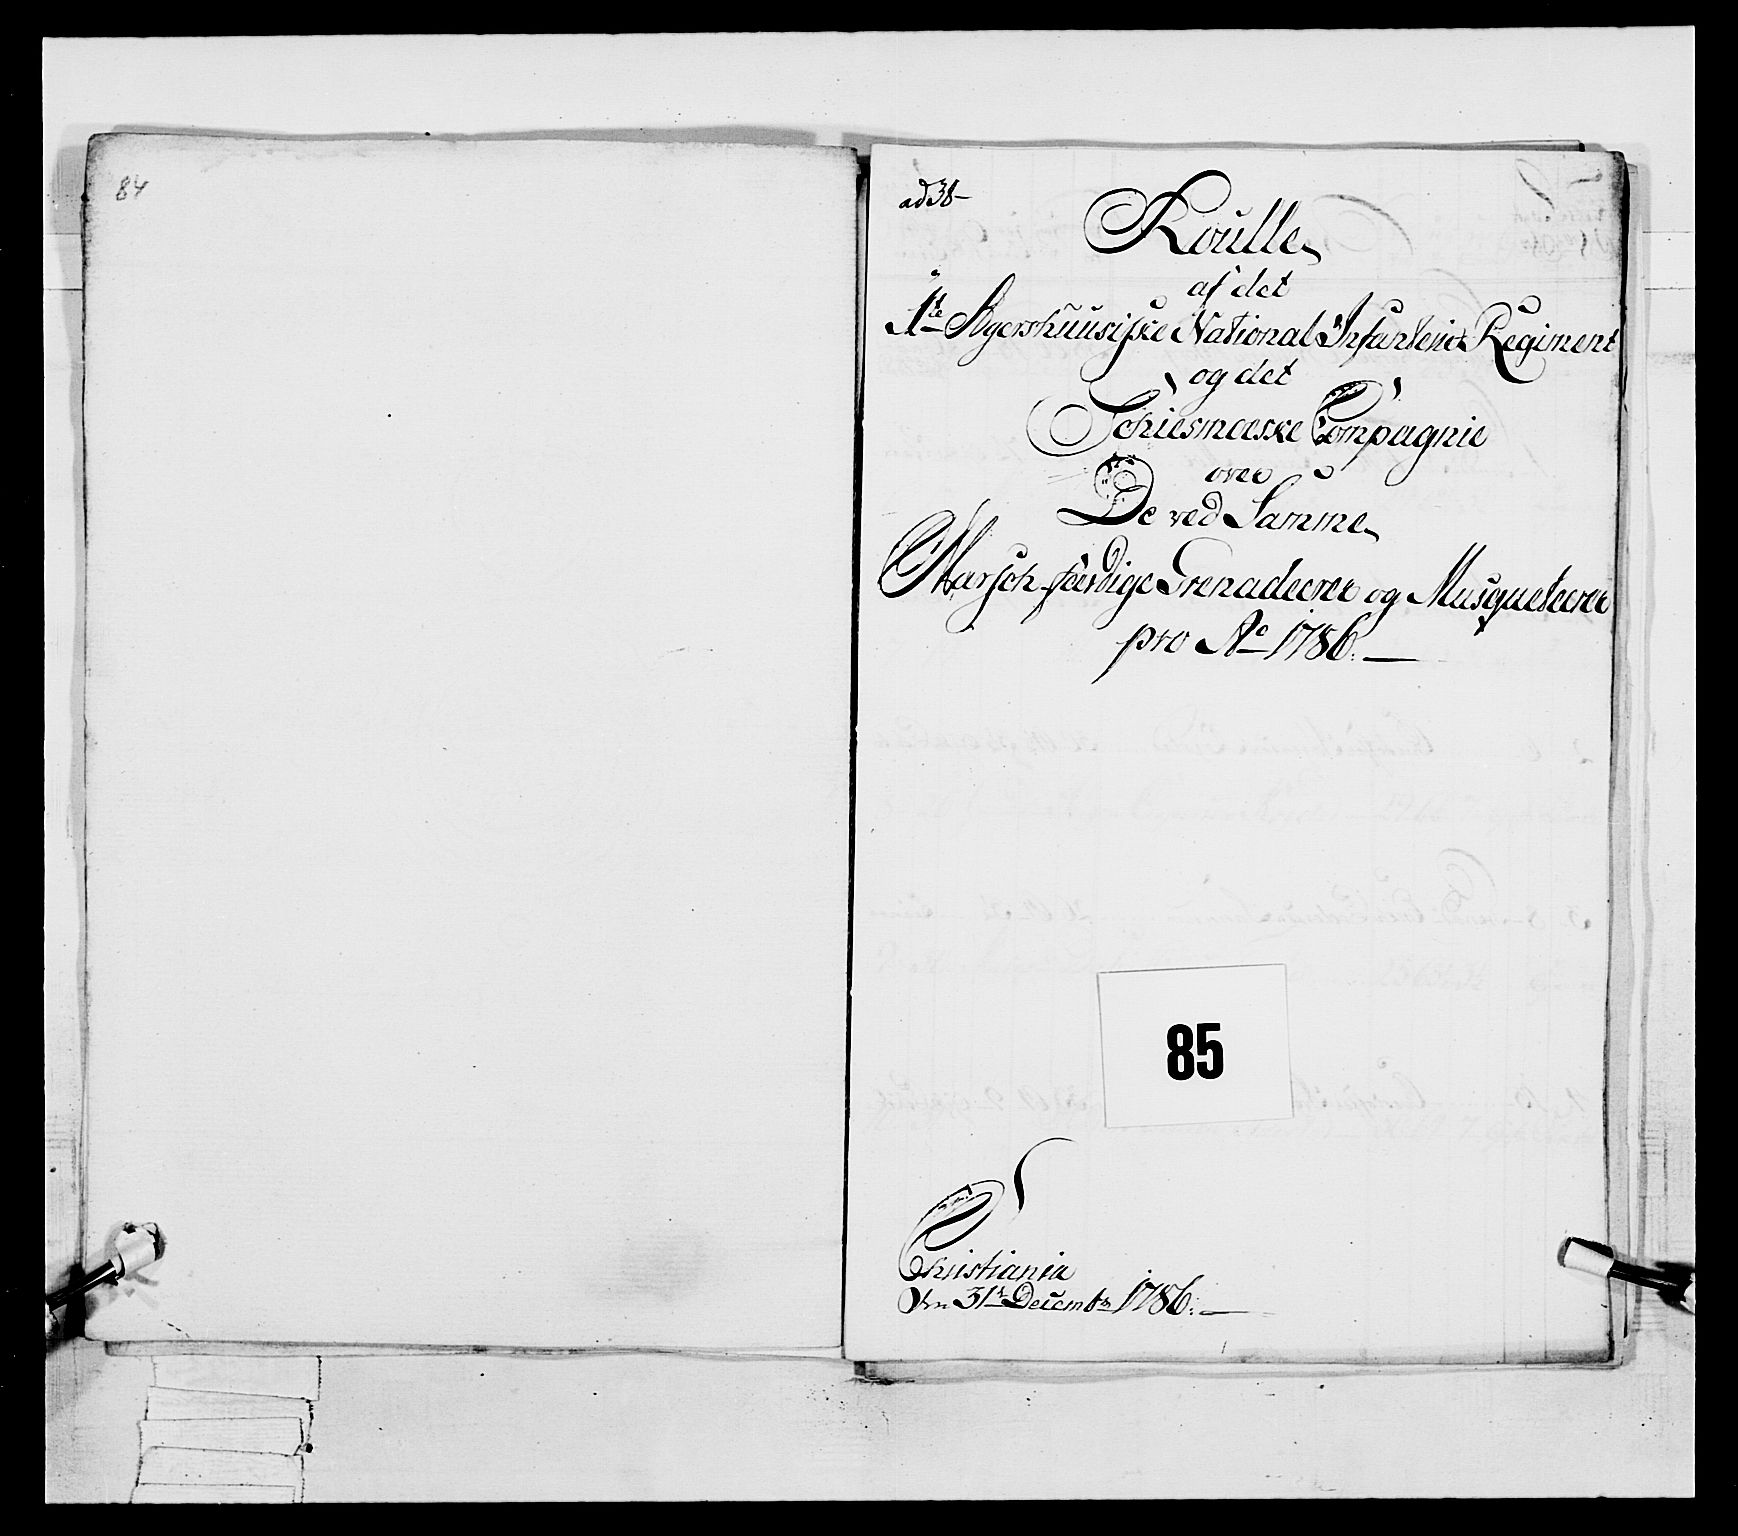 84
ad 38
Roulle
af det
1te Agershuusiske National Infanterie Regiment
og det
Schiesmoeske Compagnie
over
De ved Samme
Marsch færdige Grenadeerer og Musqueteerer
pro Ao 1786.
85
Christiania
den 31te Decembr 1786.